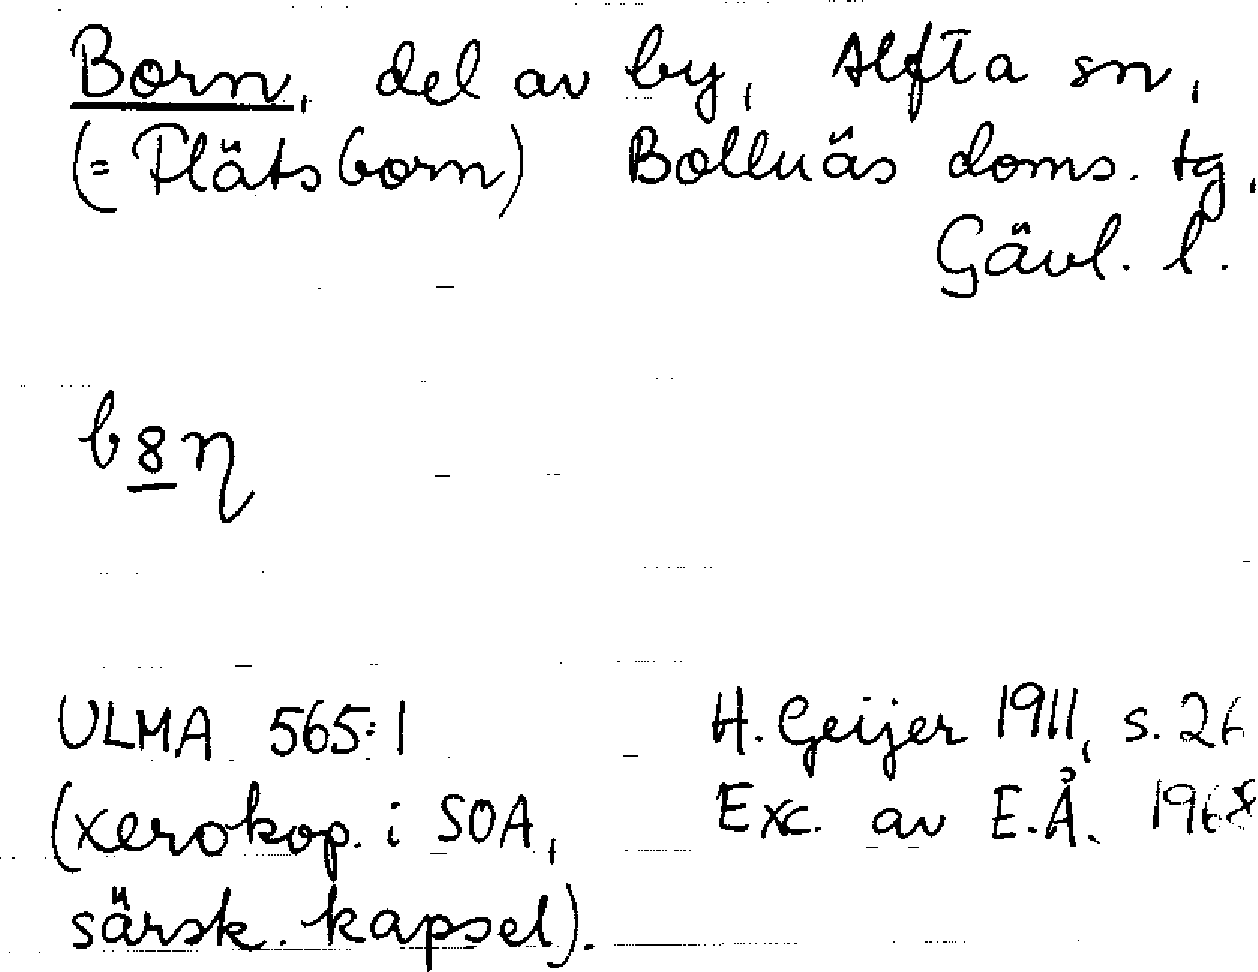 Born, del av by, Alfta sn,
(= Plätsborn) Bollnäs doms. tg,
Gävl. l.
b8η
ULMA 565:1 H. Geijer 1911, s. 26
(xerokop. i SOA, Exc. av E.Å. 1968
särsk. kapsel).